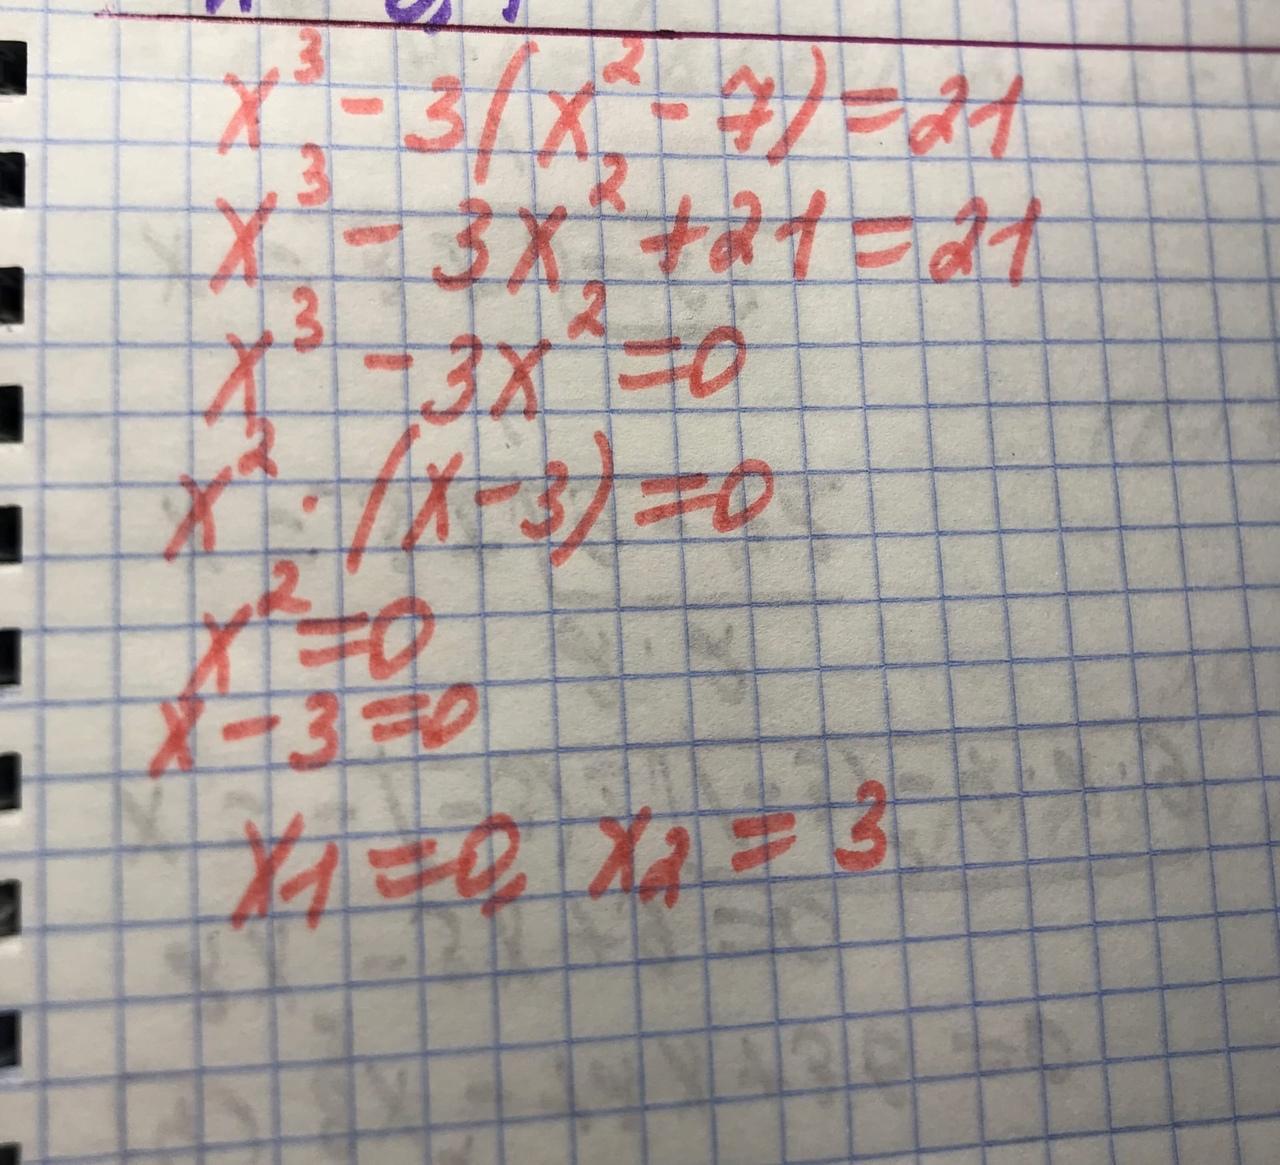 x³ - 3(x² - 7) = 21
x³ - 3x² + 21 = 21
x³ - 3x² = 0
x² · (x - 3) = 0
x² = 0
x - 3 = 0
x1 = 0, x2 = 3